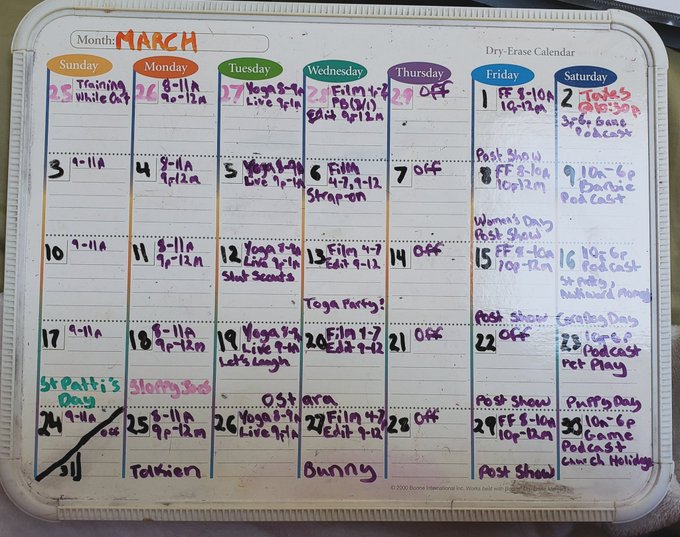 Month: MARCH
Dry-Erase Calendar
Sunday Monday Tuesday Wednesday Thursday Friday Saturday
25 Training
While Out
26 8-11A
9p-12m
27 Yoga 8-9a
Live 9p-1a
28 Film 4-7
PB (3/1)
Edit 9p-12m
29 Off
1 FF 8-10a
10p-12m
Post Show
2 Taxes
@10:30a
3p-6p Game
Podcast
3 9-11A
4 8-11A
9p-12m
5 Yoga 8-9a
Live 9p-1a
6 Film
4-7, 9-12
Strap-on
7 Off
8 FF 8-10a
10p12m
Women's Day
Post Show
9 10a-6p
Barbie
Podcast
10 9-11A
11 8-11A
9p-12m
12 Yoga 8-9a
Live 9p-1a
Slut Scouts
13 Film 4-7
Edit 9-12
Toga Party!
14 Off
15 FF 8-10A
10p-12m
Post Show
16 10a-6p
Podcast
St Patty,
Awkward
Corndog Day
17 9-11A
St Patti's
Day
18 8-11A
9p-12m
Sloppy Joes
19 Yoga 8-9a
Live 9-1a
Let's Laugh
Ostara
20 Film 4-7
Edit 9-12
21 Off
22 Off
Post Show
23 10a-6p
Podcast
Pet Play
Puppy Day
24 9-11A
Off
31
25 8-11A
9p-12m
Tolkien
26 Yoga 8-9a
Live 9p-1a
27 Film 4-7
Edit 9-12
Bunny
28 Off
29 FF 8-10A
10p-12m
Post Show
30 10a-6p
Game
Podcast
Church Holidays
© 2000 Boone International Inc. Works best with